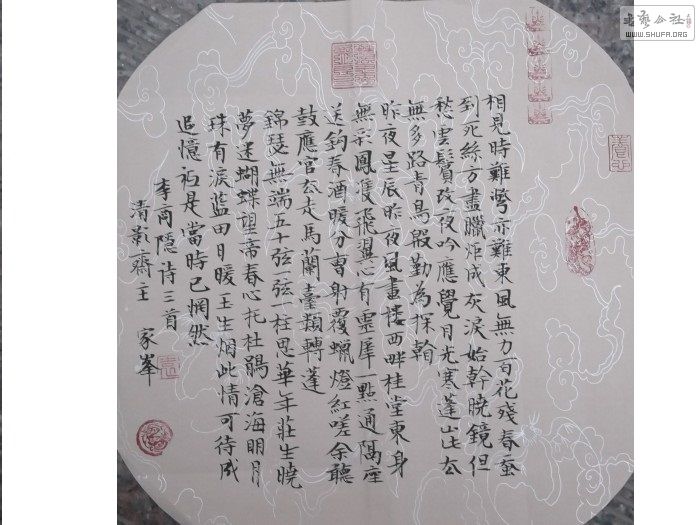 相見時難彆亦難東風無力百花殘春蚕
到死絲方盡臘炬成灰淚始幹曉鏡但
愁雲鬢改夜吟應覺月光寒蓬山此去
無多路青鳥殷勤為探翰
昨夜星辰昨夜風畫樓西畔桂堂東身
無彩鳳雙飛翼心有靈犀一點通隔座
送鈎春酒暖分曹射覆蠟燈紅嗟余聽
鼓應官去走馬蘭臺類轉蓬
錦瑟無端五十弦一弦一柱思華年莊生曉
夢迷蝴蝶望帝春心托杜鵑滄海明月
珠有淚藍田日暖玉生烟此情可待成
追憶祗是當時已惘然
李商隱詩三首
清影齋主 家峯
书艺公社
WWW.SHUFA.ORG